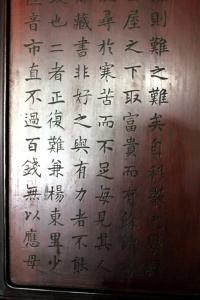 則難之難矣自科舉
屋之下取富貴而有餘
尋於寒苦而不足每見其人
藏書非好之與有力者不能
也二者正復難兼楊東里少
音市直不過百錢無以應母